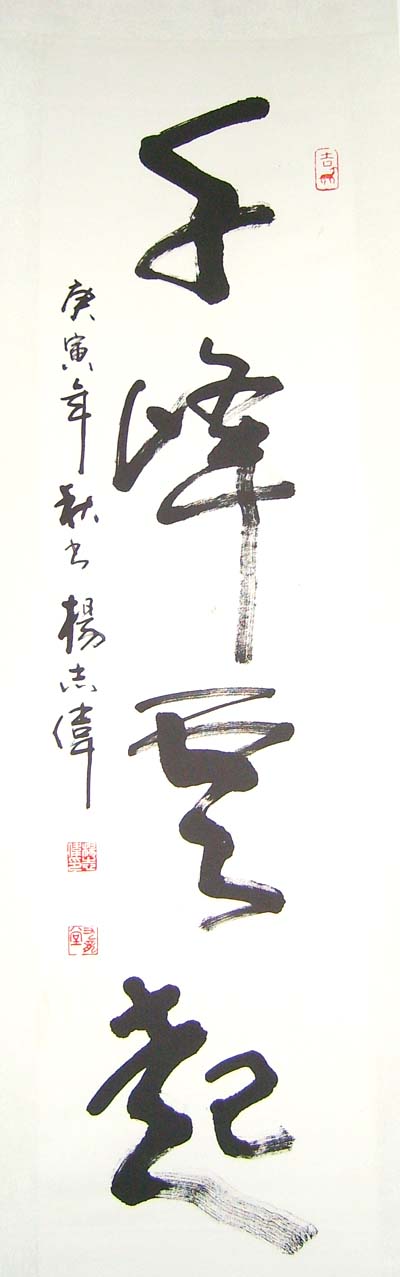 千峰雲起
庚寅年秋書楊志偉
吉